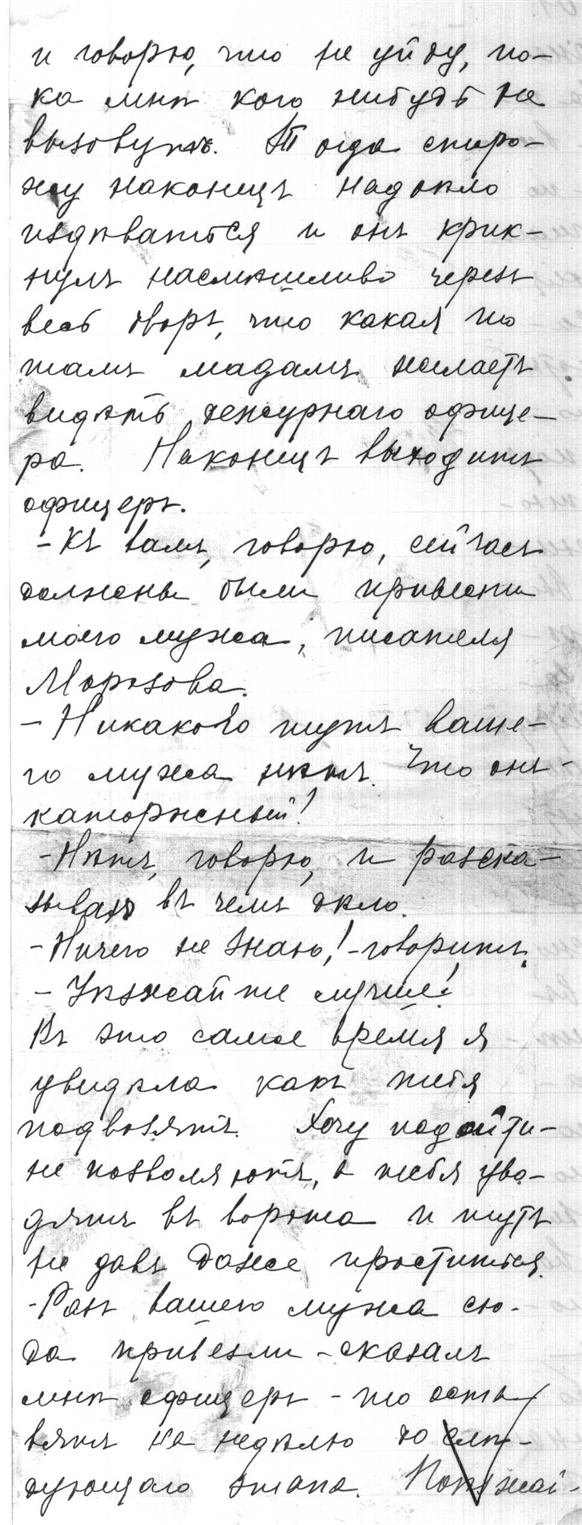 и говорю, что не уйду, по-
ка мнѣ кого нибудь не
вызовутъ. Тогда сторо-
жу наконецъ надоѣло
издѣваться и онъ крик-
нулъ насмѣшливо черезъ
весь дворъ, что какая то
тамъ мадамъ желаетъ
видѣть дежурнаго офице-
ра. Наконецъ выходитъ
офицеръ.
- Къ вамъ, говорю, сейчасъ
должны были привести
моего мужа, писателя
Морозова.
- Никакого тутъ ваше-
го мужа нѣтъ. Что онъ -
каторжный?
- Нѣтъ, говорю, и разска-
зываю въ чемъ дѣло.
- Ничего не знаю! - говоритъ.
- Уѣзжайте лучше!
Въ это самое время я
увидѣла какъ тебя
подвозятъ. Хочу подойти -
не позволяютъ, а тебя уво-
дятъ въ ворота и тутъ
не давъ даже проститься.
- Разъ вашего мужа сю-
да привезли - сказалъ
мнѣ офицеръ - то оста-
вятъ на недѣлю до слѣ-
дующаго этапа. Поѣзжай-